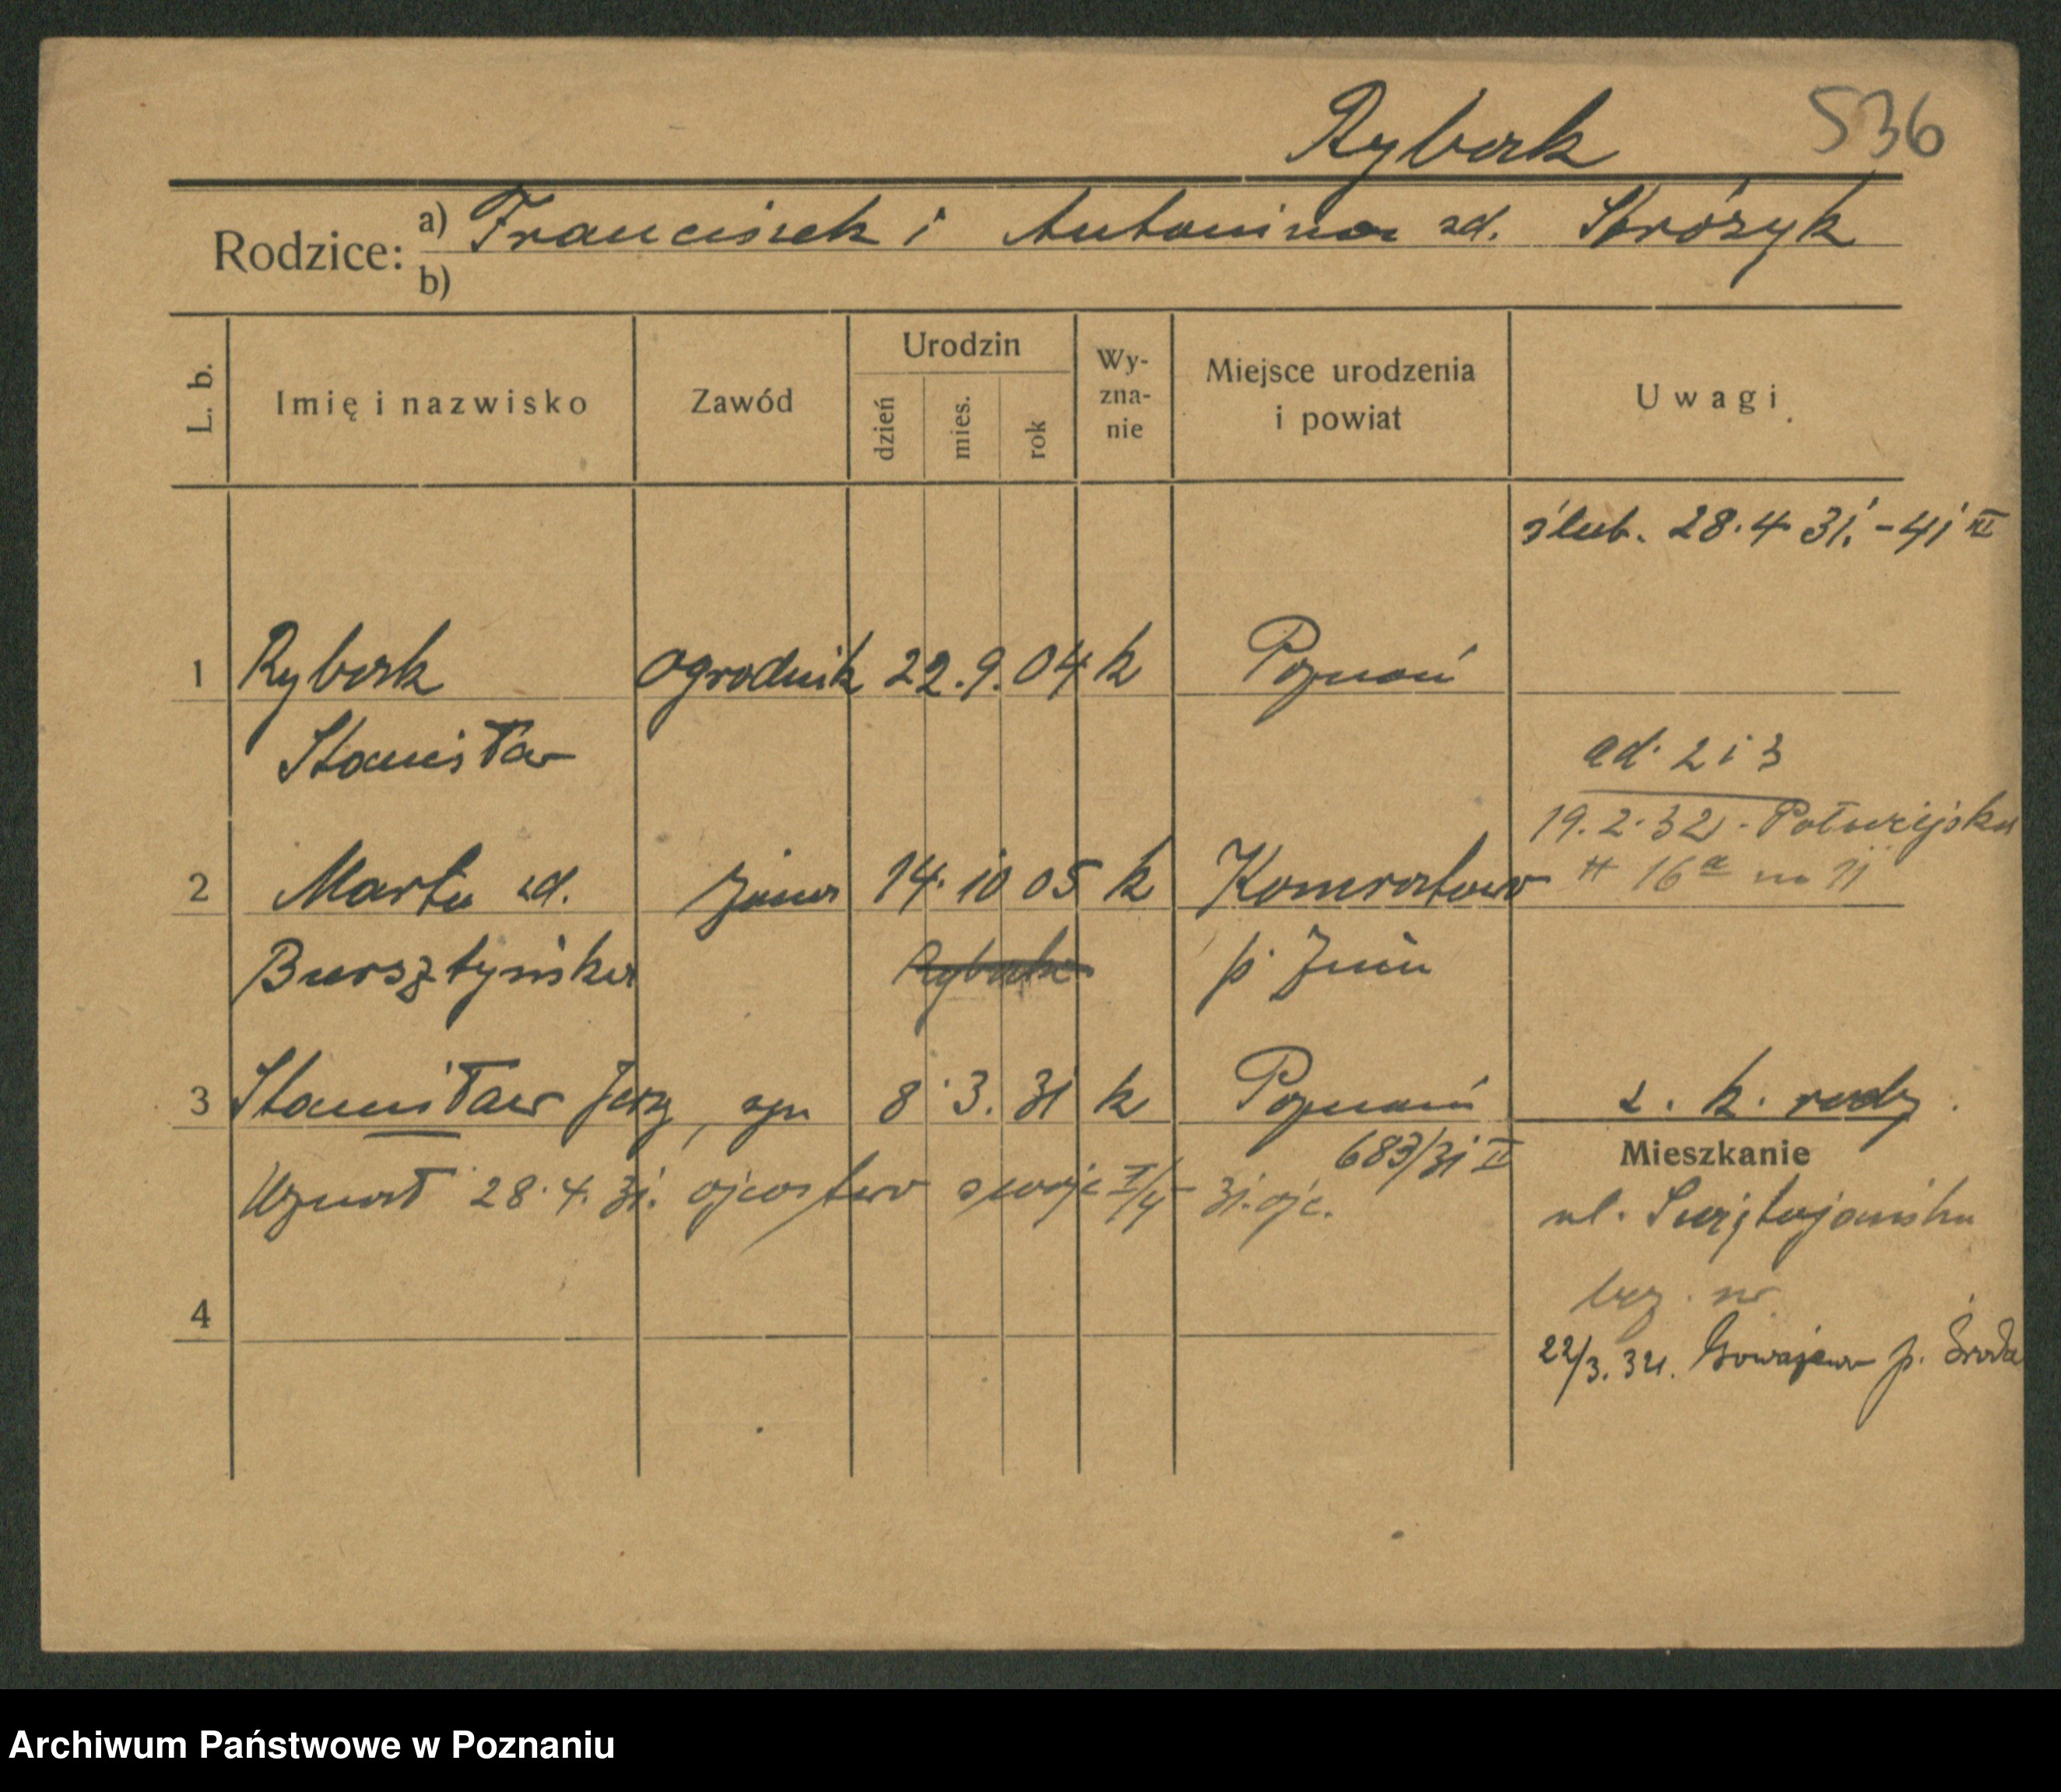 Rybak 536
Rodzice: a) Franciszek i Antonina zd. Stróżyk
b)
L. b. Imię i nazwisko Zawód Urodzin dzień mies. rok Wyznanie Miejsce urodzenia i powiat Uwagi
ślub. 28.4 31. - 41 III
1 Rybak ogrodnik 22. 9. 04 k Poznań
Stanisław
ad. 2 i 3
19.2.32
2 Marta zd. żona 14. 10 05 k Komratowo
16a m 11
Bursztyńska Rybak p. Żnin
3 Stanisław Jerzy, syn 8. 3. 31 k Poznań
683/31 II
Mieszkanie
Uznał 28.4.31. ojcostwo swoje 31. ojc.
ul. Świętojańska
bez nr.
4
22/3. 32. p. Środa
Archiwum Państwowe w Poznaniu